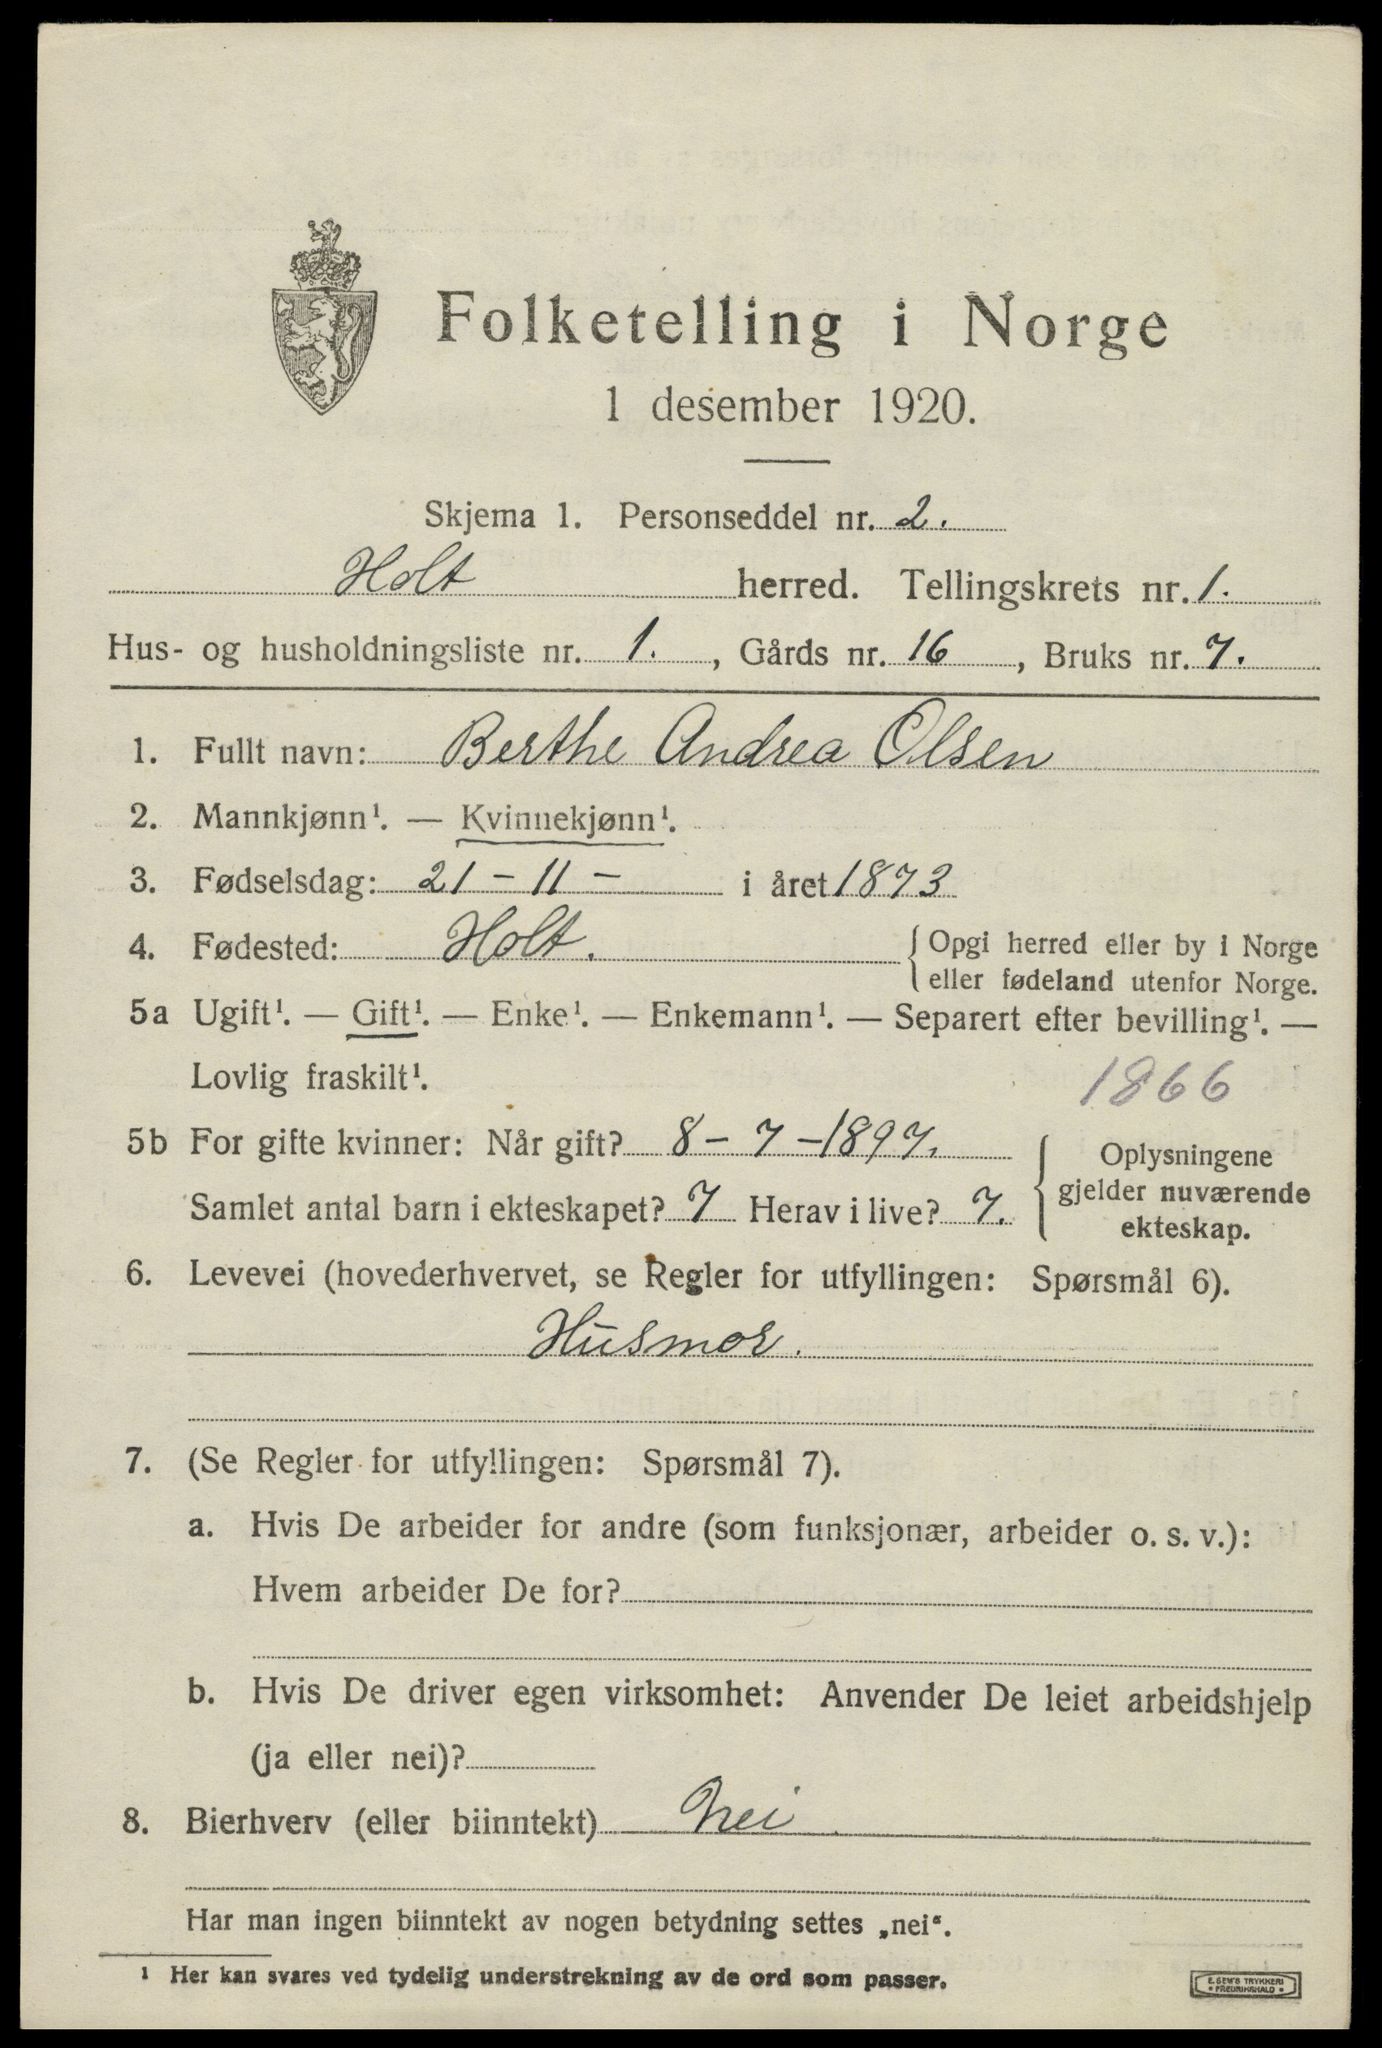 Folketelling i Norge
1 desember 1920.
Skjema 1. Personseddel nr. 2.
Holt herred. Tellingskrets nr. 1.
Hus- og husholdningsliste nr. 1., Gårds nr. 16, Bruks nr. 7.
1. Fullt navn: Berthe Andrea Olsen
2. Mannkjønn¹. — Kvinnekjønn¹.
3. Fødselsdag: 21 – 11 – i året 1873
4. Fødested: Holt. { Opgi herred eller by i Norge
eller fødeland utenfor Norge.
5a Ugift¹. — Gift¹. — Enke¹. — Enkemann¹. — Separert efter bevilling¹. —
Lovlig fraskilt¹. 1866
5b For gifte kvinner: Når gift? 8 – 7 – 1897. { Oplysningene
gjelder nuværende
Samlet antal barn i ekteskapet? 7 Herav i live? 7. ekteskap.
6. Levevei (hovederhvervet, se Regler for utfyllingen: Spørsmål 6).
Husmor.
7. (Se Regler for utfyllingen: Spørsmål 7).
a. Hvis De arbeider for andre (som funksjonær, arbeider o. s. v.):
Hvem arbeider De for?
b. Hvis De driver egen virksomhet: Anvender De leiet arbeidshjelp
(ja eller nei)?
8. Bierhverv (eller biinntekt) Nei
Har man ingen biinntekt av nogen betydning settes „nei“.
¹ Her kan svares ved tydelig understrekning av de ord som passer.
E. SEM'S TRYKKERI
* FREDRIKSHALD *